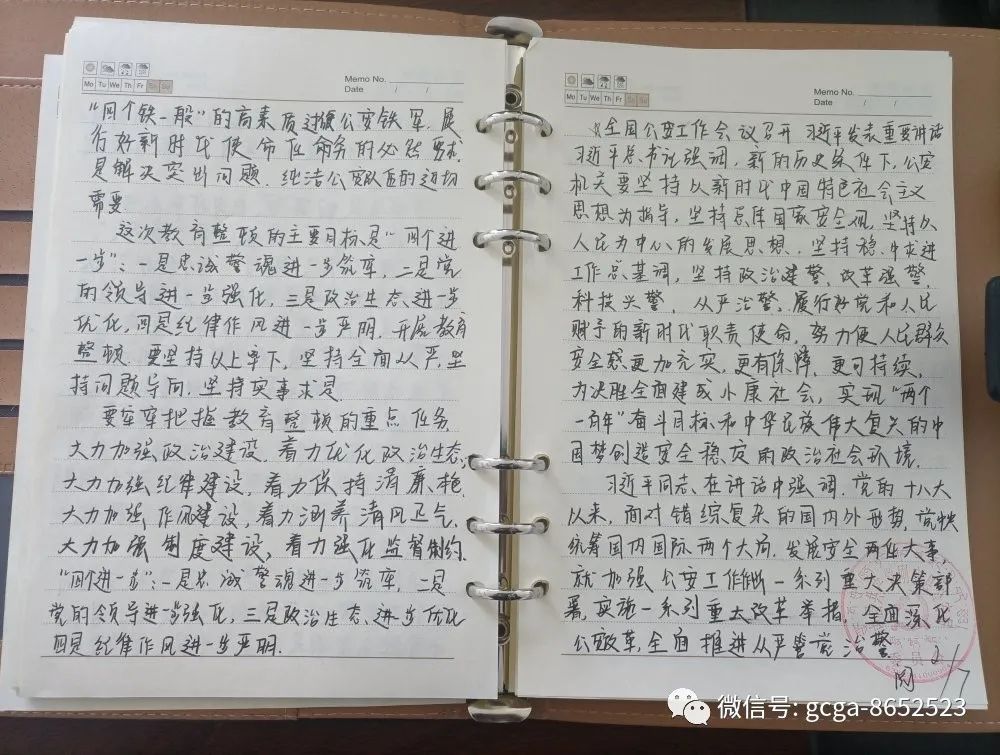 Mo Tu We Th Fr Sa Su
Memo No.
Date / /
"四个铁一般"的高素质过硬公安铁军,履
行好新时代使命任务的必然要求,
是解决突出问题,纯洁公安队伍的迫切
需要
这次教育整顿的主要目标是"四个进
一步":一是忠诚警魂进一步筑牢,二是党
的领导进一步强化,三是政治生态进一步
优化,四是纪律作风进一步严明,开展教育
整顿,要坚持以上率下,坚持全面从严,坚
持问题导向,坚持实事求是
要牢牢把握教育整顿的重点任务,
大力加强政治建设,着力优化政治生态,
大力加强纪律建设,着力保持清廉,
大力加强作风建设,着力涵养清风正气,
大力加强制度建设,着力强化监督制约.
"四个进一步":一是忠诚警魂进一步筑牢,二是
党的领导进一步强化,三是政治生态进一步优化
四是纪律作风进一步严明.
Mo Tu We Th Fr Sa Su
Memo No.
Date / /
《全国公安工作会议召开 习近平发表重要讲话
习近平总书记强调,新的历史条件下,公安
机关要坚持以新时代中国特色社会主义
思想为指导,坚持总体国家安全观,坚持以
人民为中心的发展思想,坚持稳中求进
工作总基调,坚持政治建警,改革强警,
科技兴警,从严治警,履行好党和人民
赋予的新时代职责使命,努力使人民群众
安全感更加充实,更有保障,更可持续,
为决胜全面建成小康社会,实现"两个
一百年"奋斗目标和中华民族伟大复兴的中
国梦创造安全稳定的政治社会环境.
习近平同志在讲话中强调,党的十八大
以来,面对错综复杂的国内外形势,党中央
统筹国内国际两个大局,发展安全两件大事,
就加强公安工作作出一系列重大决策部
署,实施一系列重大改革举措,全面深化
公安改革,全面推进从严管党治警
微信号: gcga-8652523